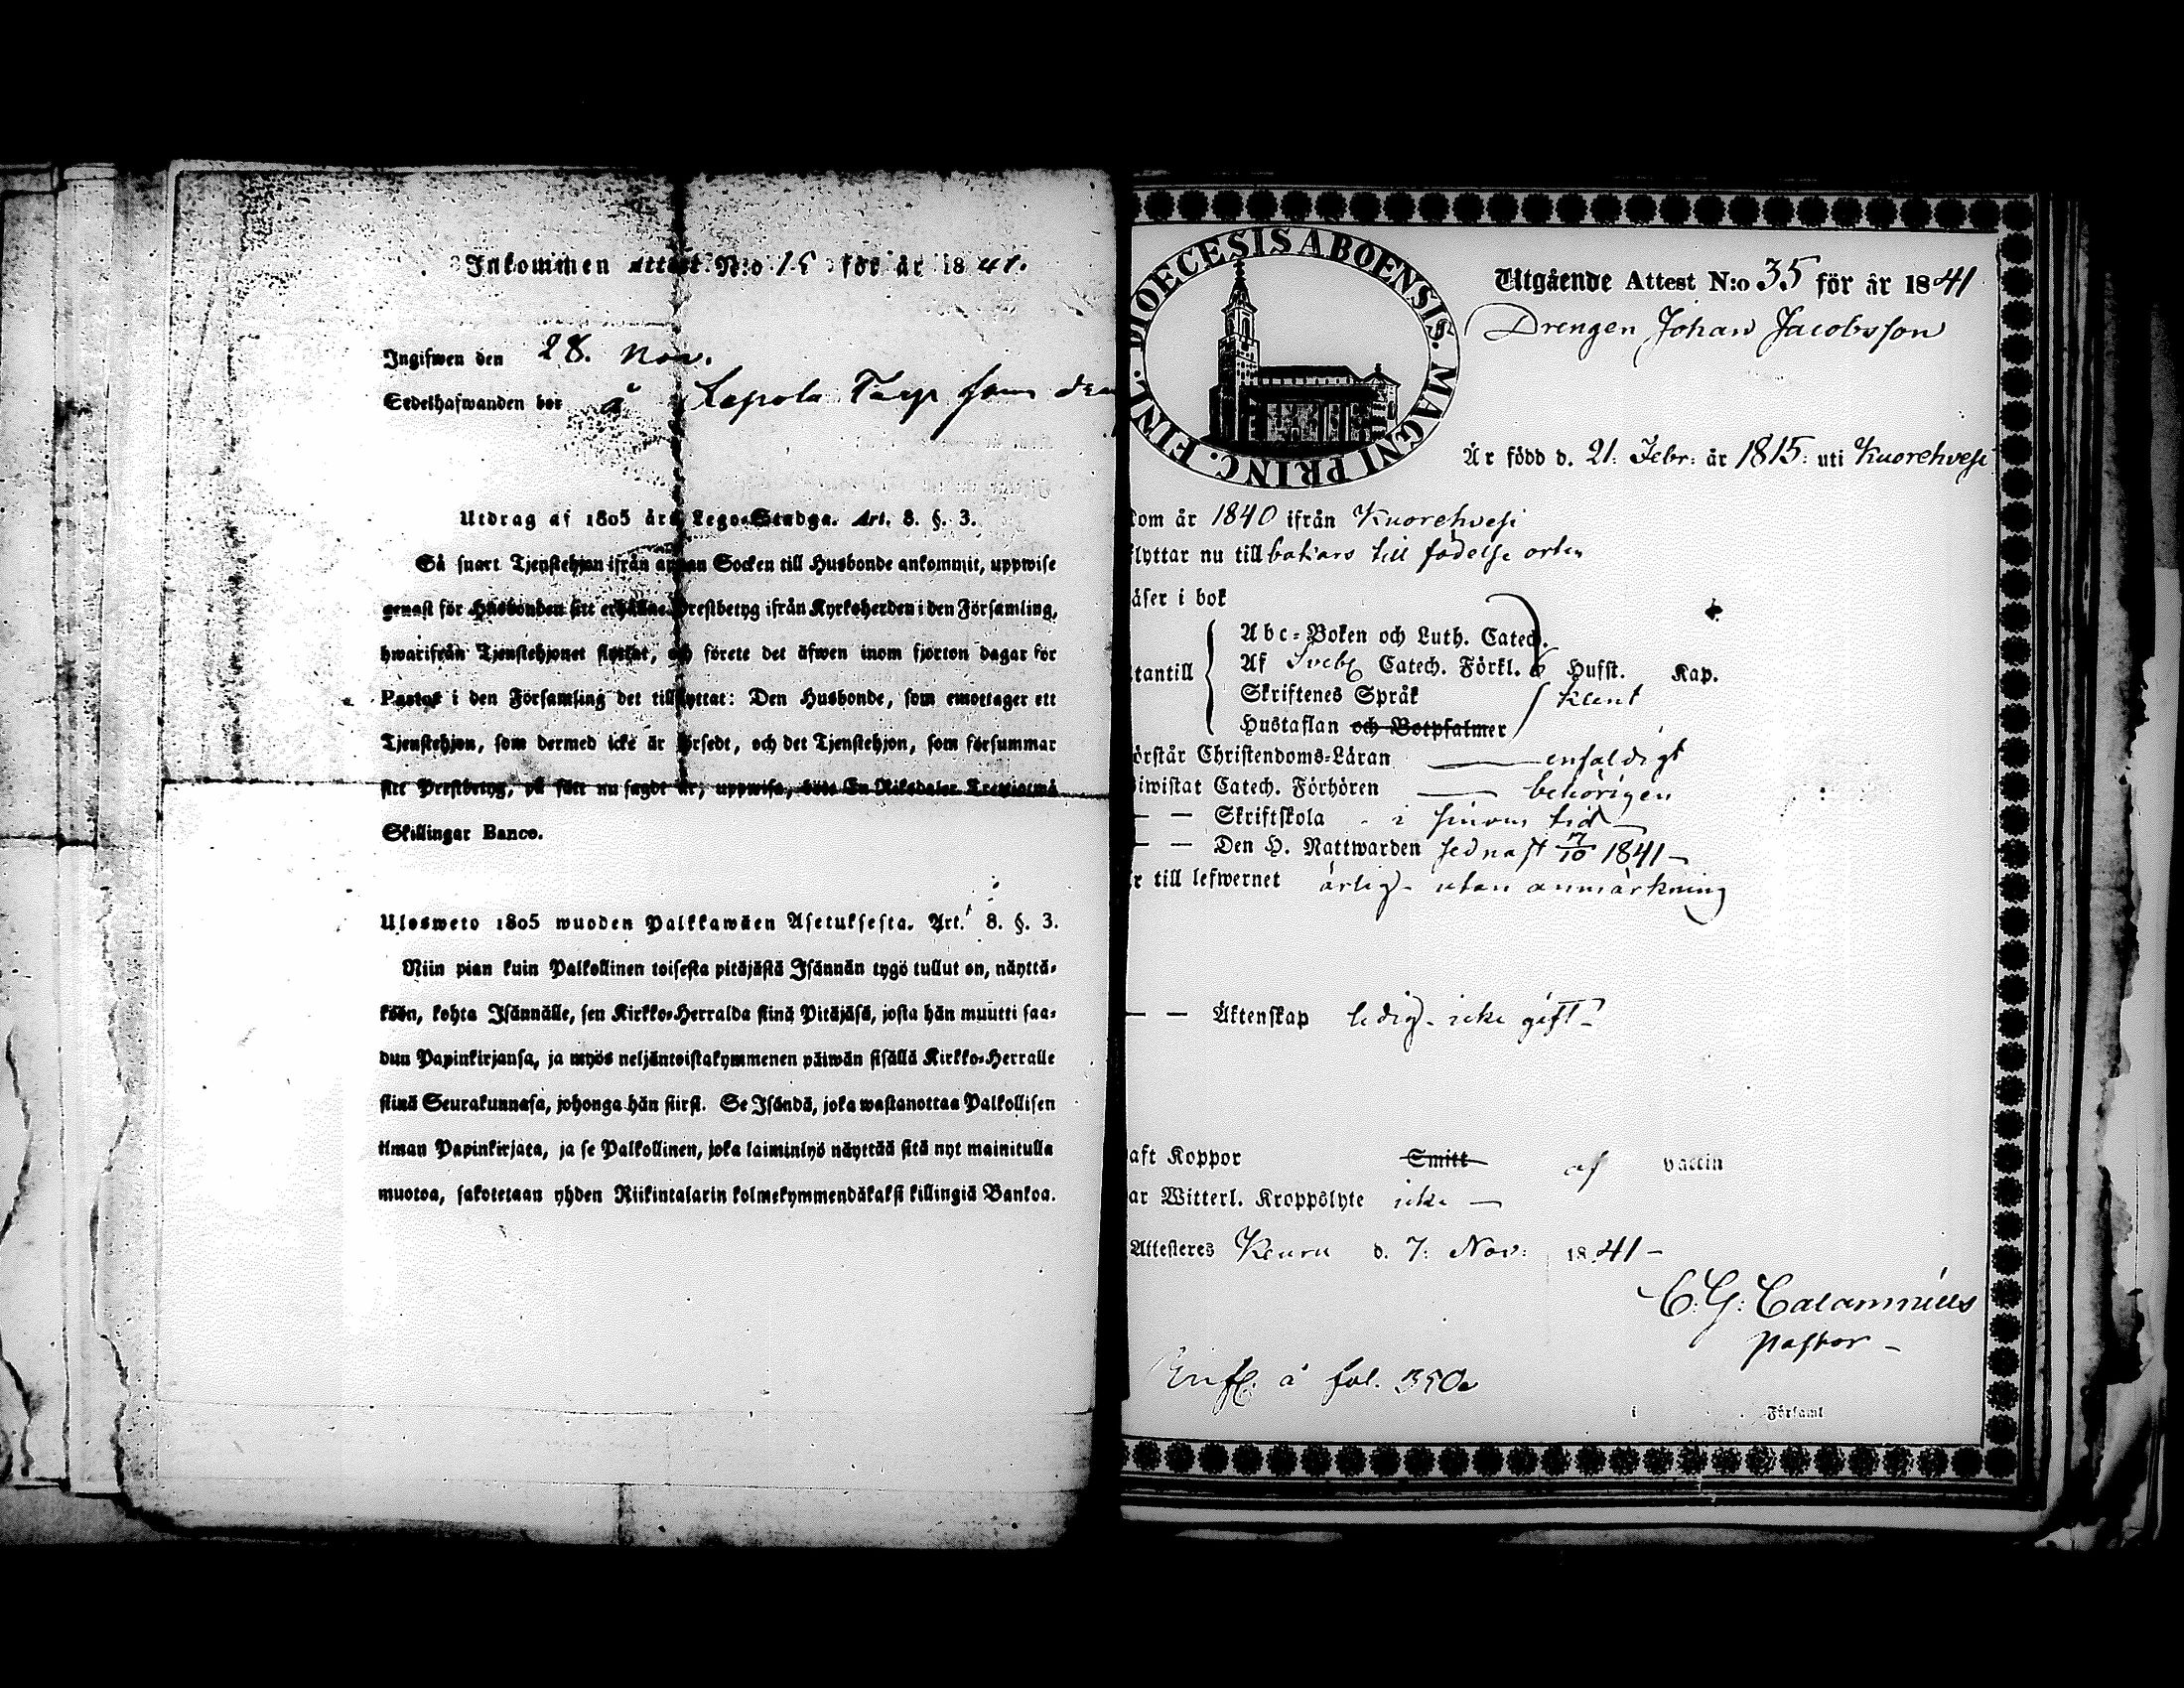 Inkommen Attest N:o för år 1841.
Ingifwen den 28. Nov.
Sedelhafwanden bor å Torp som
Utdrag af 1805 års Lego-Stadga. Art. 8. §. 3.
Så snart Tjenstehjon ifrån annan Socken till Husbonde ankommit, uppwise
genast för Husbonden sitt erhållne Prestbetyg ifrån Kyrkoherden i den Församling,
hwarifrån Tjenstehjonet flyttat, och förete det äfwen inom fjorton dagar för
Pastor i den Församling det tillflyttat: Den Husbonde, som emottager ett
Tjenstehjon, som dermed icke är försedt, och det Tjenstehjon, som försummar
sitt Prestbetyg, på sätt nu sagdt är, uppwisa, böte En Riksdaler Trettiotwå
Skillingar Banco.
Ulosweto 1805 wuoden Palkkawäen Asetuksesta. Art. 8. §. 3.
Niin pian kuin Palkollinen toisesta pitäjästä Isännän tygö tullut on, näyttä-
köön, kohta Isännälle, sen Kirkko-Herralda siinä Pitäjäsä, josta hän muutti saa-
dun Papinkirjansa, ja myös neljäntoistakymmenen päiwän sisällä Kirkko-Herralle
siinä Seurakunnasa, johonga hän siirsi. Se Isändä, joka wastanottaa Palkollisen
ilman Papinkirjata, ja se Palkollinen, joka laiminlyö näyttää sitä nyt mainitulla
muotoa, sakotetaan yhden Riikintalarin kolmekymmendäkaksi killingiä Bankoa.
DIOECESIS ABOENSIS. MAGNI PRINC. FINL.
Utgående Attest N:o 35 för år 1841
Drengen Johan Jacobsson
Är född d. 21: Febr: år 1815: uti Kuorehvesi
kom år 1840 ifrån Kuorehvesi
flyttar nu till bakars till födelse orten
äser i bok
Abc-Boken och Luth. Catech.
tantill Af Sveb. Catech. Förkl. 6 Husst. Kap.
Skriftenes Språk klent
Hustaflan och Botpsalmer
örstår Christendoms-Läran — enfaldigt
iwistat Catech. Förhören — behörigen
— — Skriftskola i sinom tid —
— — Den H. Nattwarden sednast 7/10 1841 —
r till lefwernet ärlig - utan anmärkning
— — Äktenskap ledig - icke gift -
aft Koppor Smitt af vaccin
ar Witterl. Kroppslyte icke —
Attesteres Keuru d. 7: Nov: 1841 —
C. G: Calamnius
Pastor -
å fol. 350.
i Församl